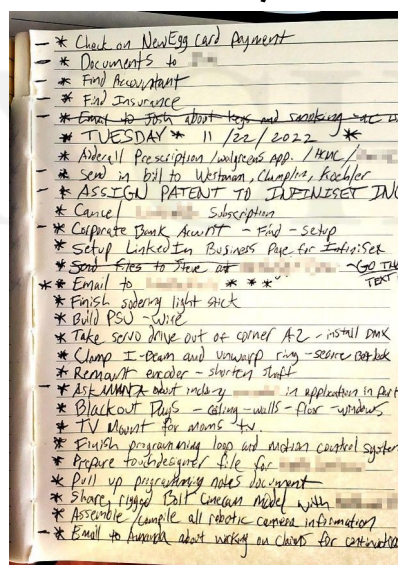 - * Check on NewEgg Card Payment
- * Documents to
- * Find Accountant
- * Find Insurance
- * Email to Josh about keys and smoking - AC
- * TUESDAY * 11/22/2022 *
- * Aderall Prescription / walgreens App. / HCMC /
- * Send in bill to Westman, Champlin, Koehler
- * ASSIGN PATENT TO INFINISET INC
* Cancel Subscription
* Corporate Bank Account - Find - Setup
* Setup LinkedIn Business Page for Infiniset
* Send Files to Steve at ~ GO TH
* * Email to * * * TEXT
* Finish sodering light stick
* Build PSU - Wire
* Take servo drive out of corner A2 - install DMX
* Clamp I-Beam and unwarp ring - secure
* Remount encoder - shorten shaft
- * Ask about in application in part
* Blackout Dugs - ceiling - walls - floor - windows
* TV Mount for moms tv.
* Finish programming loop and motion control system
* Prepare touchdesigner file for
* Pull up programming notes document
* Share rigged Bolt Cinecam model with
* Assemble / Compile all robotic camera information
- * Email to Amanda about working on claims for continuation